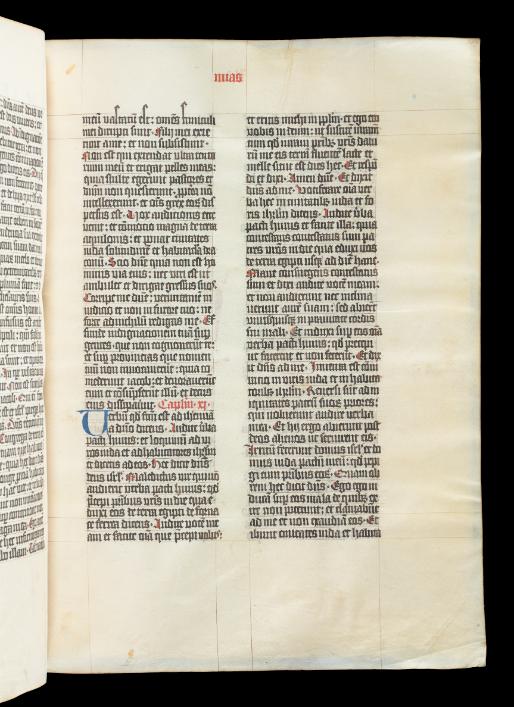 mias
meū vastatū est: omēs funiculi
mei dirupti sunt. Filii mei exie
runt a me: et non subsistunt.
Non est qui extendat ultra tento
rium meū et erigat pelles meas:
quia stulte egerunt pastores et
dn̄m non quesierunt. ppterea nō
intellexerunt: et oīs grex eoꝝ dis
persus est. Uox auditionis ecce
venit: et cōmotio magna de terra
aquilonis: ut ponat civitates
iuda solitudinē et habitaculū dra
conū. Scio dn̄e quia non est ho
minis via eius: nec viri est ut
ambulet et dirigat gressus suos.
Corripe me dn̄e: verumtamē in
iudicio et non in furore tuo: ne
forte ad nichilū redigas me. Ef
funde indignationem tuā sup
gentes. que non cognoverūt te:
et sup provincias que nomen
tuū non invocaverūt: quia co
mederunt iacob: et devoraverūt
eum et cōsūpserūt illū: et decus
eius dissipaverūt. Capłm xj.
Verbū qd̄ factū est ad iheremiā
a dn̄o dicens. Audite verba
pacti huius: et loquimī ad vi
ros iuda et ad habitatores ihrl̄m
et dices ad eos. Hec dicit dn̄s
deus isrl̄. Maledictus vir qui nō
audierit verba pacti huius: qd̄
precepi patribus vr̄is in die qua e
duxi eos de terra egipti de fornace
ferrea dicens. Audite vocē me
am et facite oīa que precipio vobis:
et eritis michi in pplm̄. et ego ero
vobis in deum: ut suscitē iuramē
tum qd̄ iuravi patribȝ vr̄is datu
rū me eis terrā fluentē lacte et
melle sicut est dies hec. Et respō
di et dixi. Amen dn̄e. Et dixit
dn̄s ad me. Vociferare oīa ver
ba hec in civitatibȝ iuda et fo
ris ihrl̄m dicens. Audite verba
pacti huius et facite illa: quia
contestans contestatus sum pa
tres vr̄os in die qua eduxi eos
de terra egipti usqȝ ad diē hanc.
Mane consurgens contestatus
sum et dixi audite vocē meam:
et non audierunt nec inclina
verunt aurē suam: sed abierūt
unusquisqȝ in pravitate cordis
sui mali. Et induxi sup eos oīa
verba pacti huius: qd̄ precepi
ut facerent et non fecerūt. Et dix
it dn̄s ad me. Inventa est cōiu
ratio in viris iuda et in habita
toribȝ ihrl̄m. Reversi sunt ad in
iquitates patrū suoꝝ priores:
qui noluerunt audire verba
mea. Et hij ergo abierunt post
deos alienos ut servirent eis.
Irritū fecerunt domus isrl̄ et do
mus iuda pactū meū: qd̄ pepi
gi cum patribus eoꝝ. Quam ob
rem hec dicit dn̄s. Ego ego in
ducā sup eos mala de quibȝ ex
ire non poterunt: et clamabūt
ad me et non exaudiā eos. Et
ibunt civitates iuda et habita